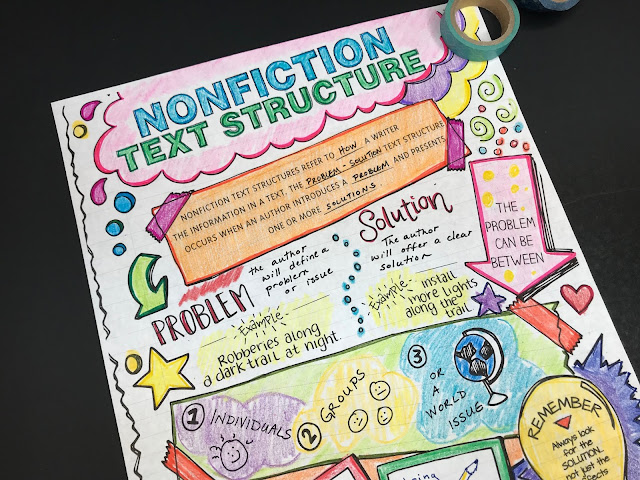 NONFICTION
TEXT STRUCTURE
NONFICTION TEXT STRUCTURES REFER TO HOW A WRITER
THE INFORMATION IN A TEXT. THE PROBLEM-SOLUTION TEXT STRUCTURE
OCCURS WHEN AN AUTHOR INTRODUCES A PROBLEM AND PRESENTS
ONE OR MORE SOLUTIONS.
PROBLEM
the author
will define a
problem
or issue
Example
Robberies along
a dark trail at night.
Solution
The author
will offer a clear
solution
Example
install
more lights
along the
trail
THE
PROBLEM
CAN BE
BETWEEN
1 INDIVIDUALS
2 GROUPS
3 OR
A
WORLD
ISSUE
REMEMBER
Always look
for the
SOLUTION,
not just the